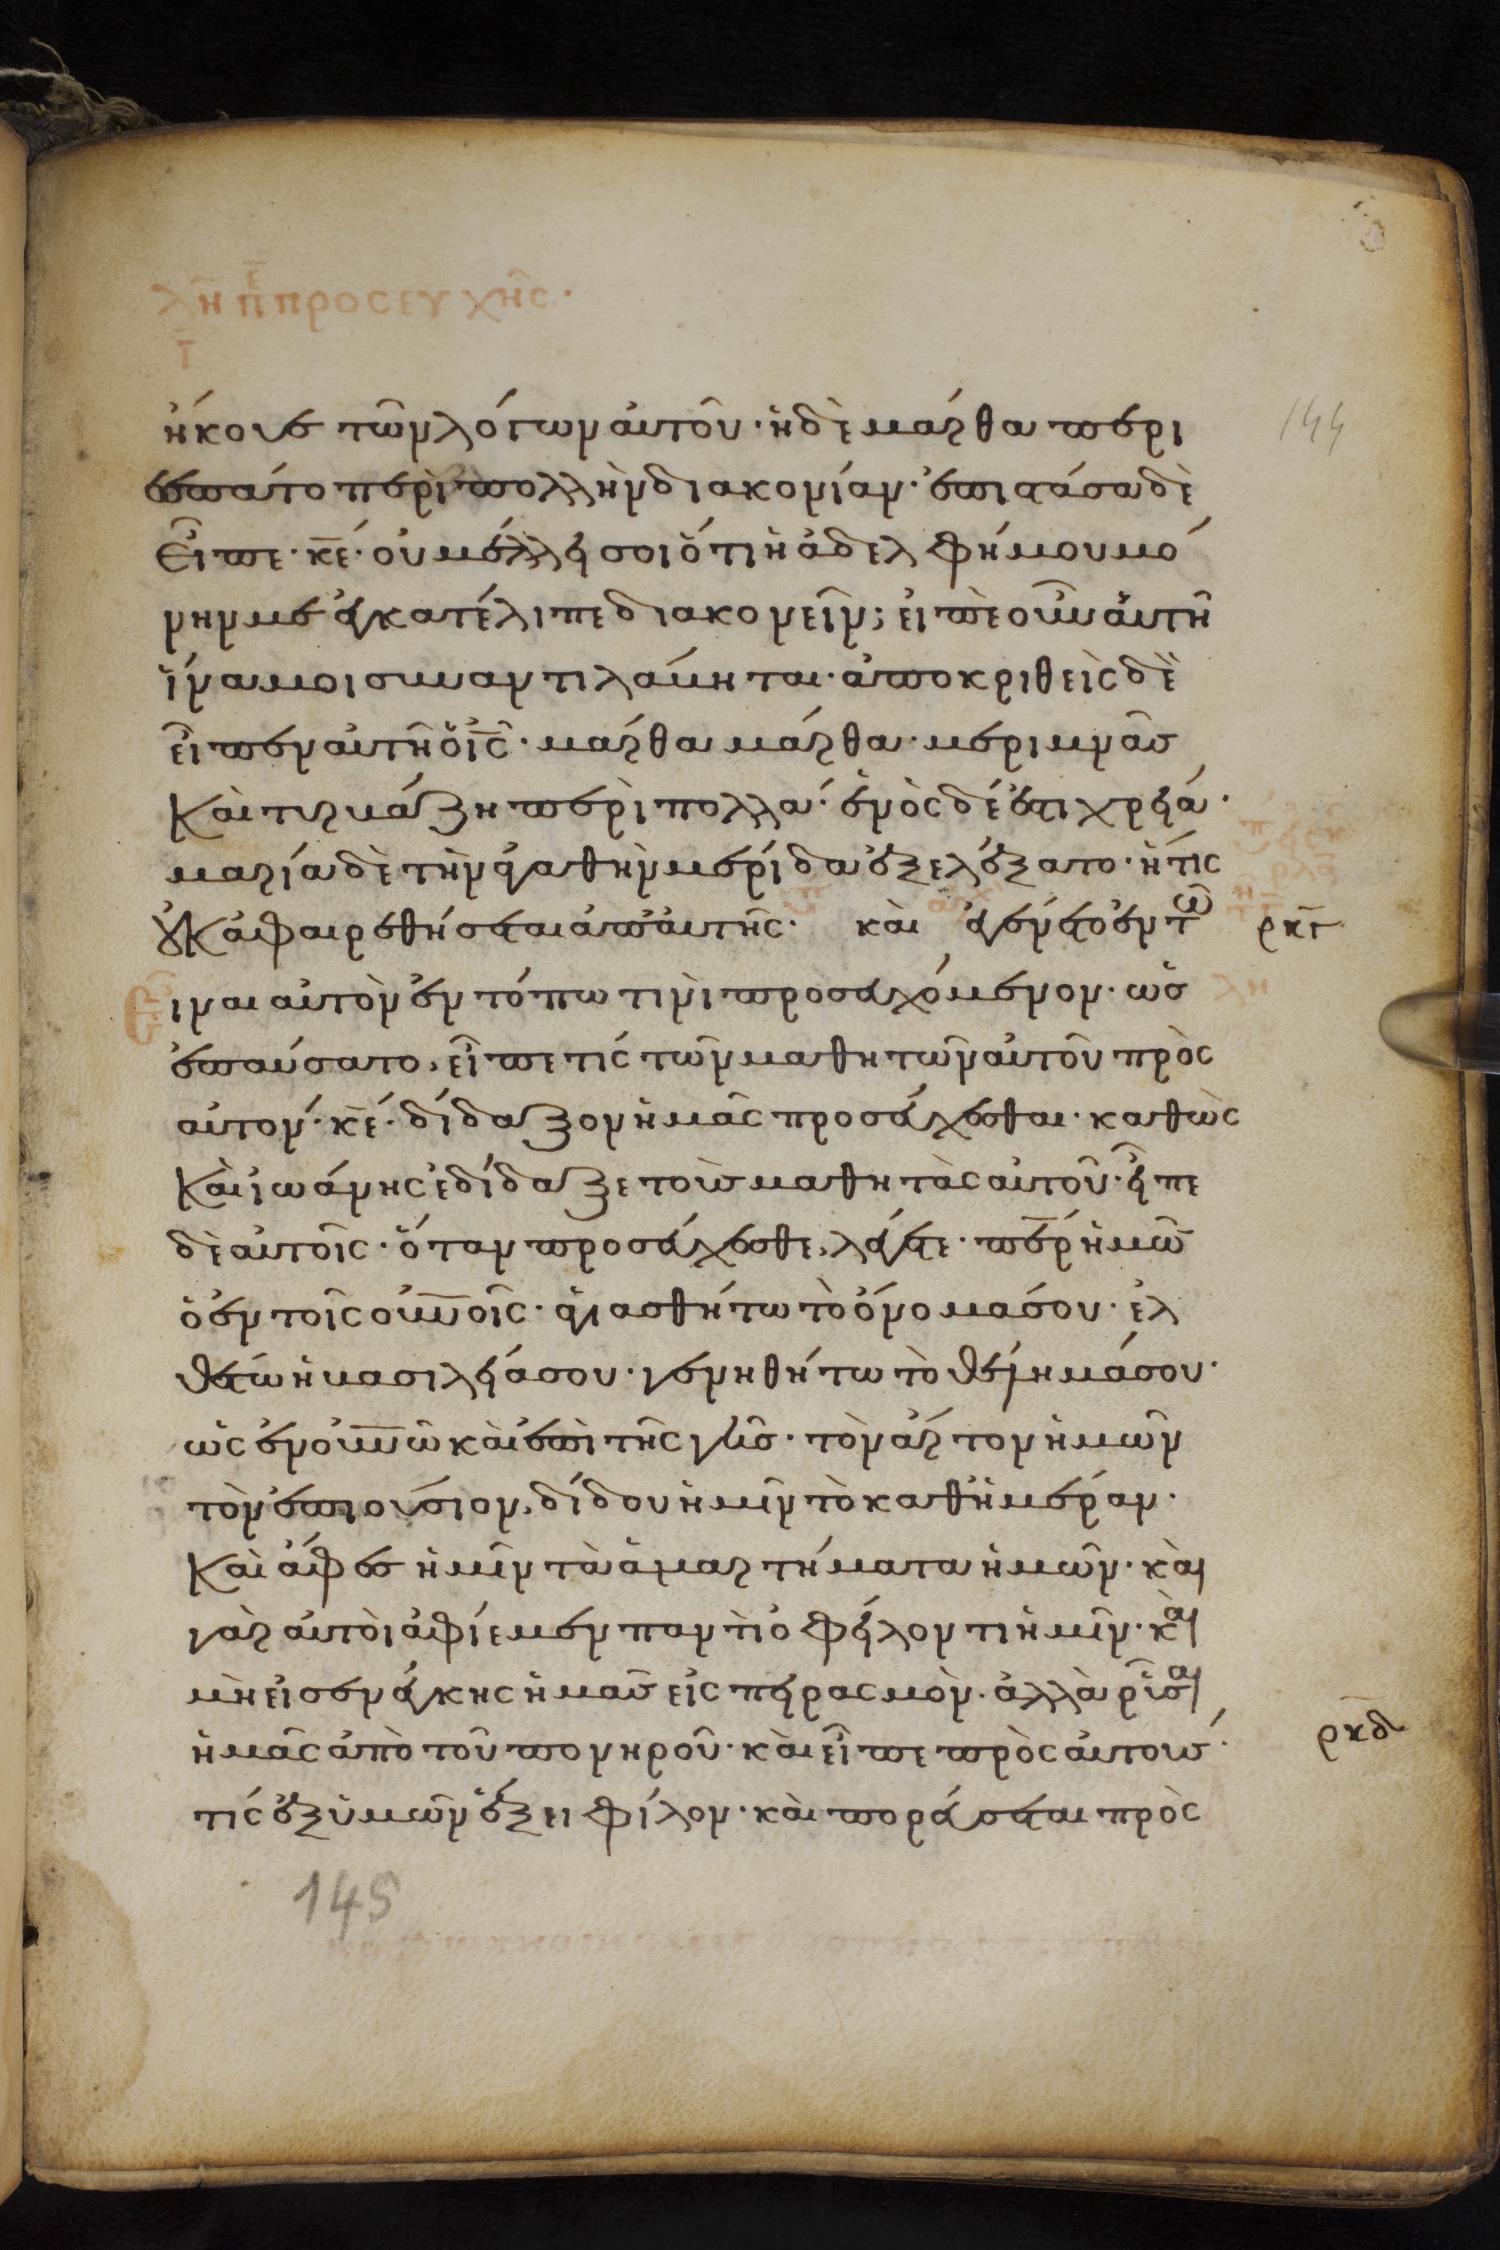 λη πε προσευχῆς·
ἤκουε τῶν λόγων αὐτοῦ· ἡ δὲ μάρθα περι
εσπάτο περὶ πολλὴν διακονίαν· ἐπιστάσα δὲ
εἶπε· κε· οὐ μέλλει σοι ὅτι ἡ ἀδελφή μου μό
νην με ἐγκατέλιπε διακονεῖν; εἰπὲ οὖν αὐτῆ
ἵνα μοι συναντιλάβηται· ἀποκριθεὶς δὲ
εἶπεν αὐτῆ ὁ ις· μάρθα μάρθα· μεριμνᾶς
καὶ τυρβάζη περὶ πολλά· ἑνὸς δέ ἐστι χρεία·
μαρία δὲ τὴν ἀγαθὴν μερίδα ἐξελέξατο· ἥτις
οὐκ ἀφαιρεθήσεται ἀπ' αὐτῆς· καὶ ἐγένετο ἐν τῶ
ιναι αὐτὸν ἐν τόπω τινὶ προσευχόμενον· ὡς
ἐπαύσατο, εἶπε τίς τῶν μαθητῶν αὐτοῦ πρὸς
αὐτον· κε· δίδαξον ἡμᾶς προσεύχεσθαι· καθὼς
καὶ ἰωάννης ἐδίδαξε τοὺς μαθητὰς αὐτοῦ· εἶπε
δὲ αὐτοῖς· ὅταν προσεύχεσθε, λέγετε· περ ἡμῶ
ὁ ἐν τοῖς ουνοῖς· ἁγιασθήτω τὸ ὄνομά σου· ἐλ
θέτω ἡ βασιλεία σου· γενηθήτω τὸ θέλημά σου·
ὡς ἐν ουνῶ καὶ ἐπὶ τῆς γῆς· τὸν ἄρτον ἡμῶν
τὸν ἐπιούσιον, δίδου ἡμῖν τὸ καθ' ἡμέραν·
καὶ ἄφες ἡμῖν τὰ ἁμαρτήματα ἡμῶν· καὶ
γὰρ αὐτοὶ ἀφίεμεν παντὶ ὀφείλοντι ἡμῖν· καὶ
μὴ εἰσενέγκης ἡμᾶς εἰς πειρασμὸν· ἀλλὰ ρῦσαι
ἡμᾶς ἀπὸ τοῦ πονηροῦ· καὶ εἶπε πρὸς αὐτούς·
τίς ἐξ ὑμῶν ἕξει φίλον· καὶ πορεύσεται πρὸς
144
ρκγ
ρκδ
145